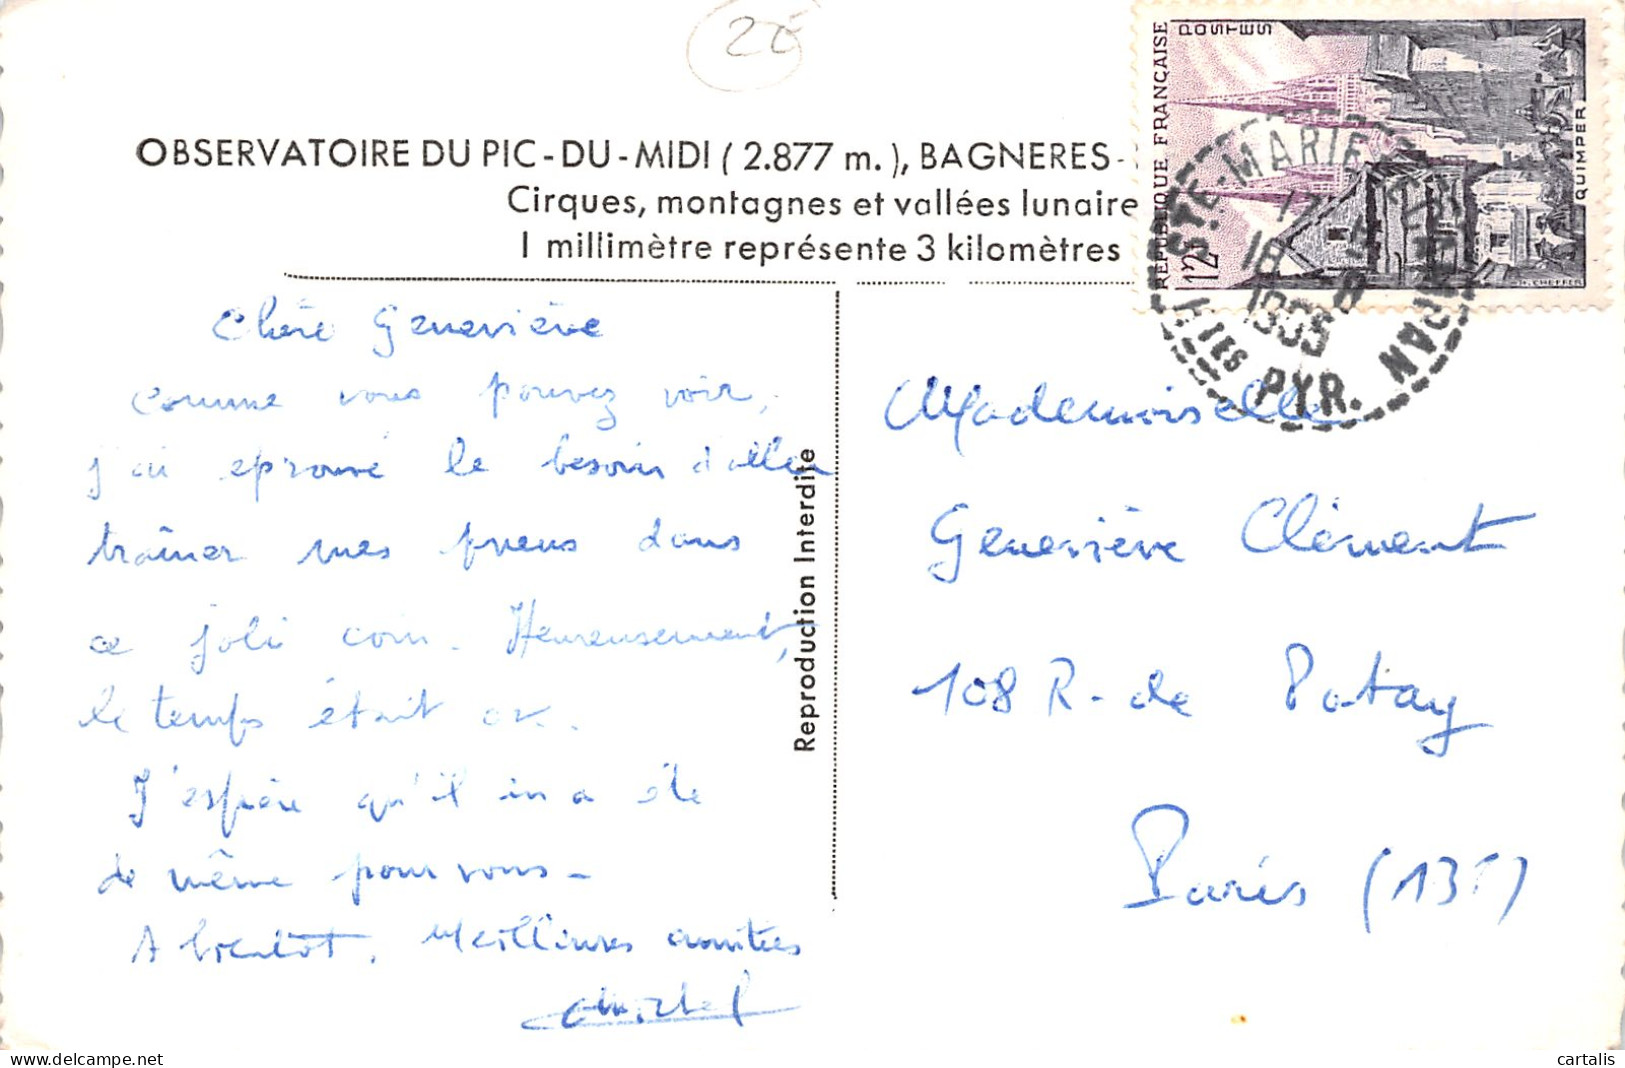 2€
OBSERVATOIRE DU PIC-DU-MIDI (2.877 m.), BAGNERES-
Cirques, montagnes et vallées lunaire
1 millimètre représente 3 kilomètres
REPUBLIQUE FRANÇAISE
POSTES
12F
QUIMPER
STE-MARIE
CAMPAN
17
18 -8
1955
HTES PYR.
Chère Geneviève
comme vous pouvez voir,
j'ai éprouvé le besoin d'aller
traîner mes pneus dans
ce joli coin. Heureusement,
le temps était ok.
J'espère qu'il en a été
de même pour vous -
A bientôt. Meilleures amitiés
Michel
Reproduction Interdite
Mademoiselle
Geneviève Clément
108 R. de Patay
Paris (13e)
cartalis